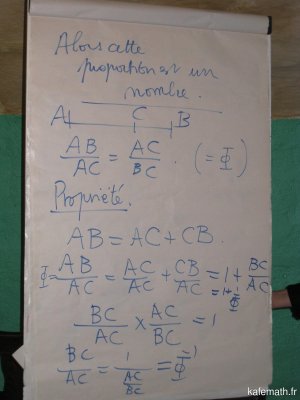 Alors cette
proportion est un
nombre.
A C B
AB/AC = AC/BC . (= Φ)
Propriété.
AB = AC + CB.
Φ = AB/AC = AC/AC + CB/AC = 1 + BC/AC
= 1 + 1/Φ
BC/AC × AC/BC = 1
BC/AC = 1/(AC/BC) = Φ¹
kafemath.fr